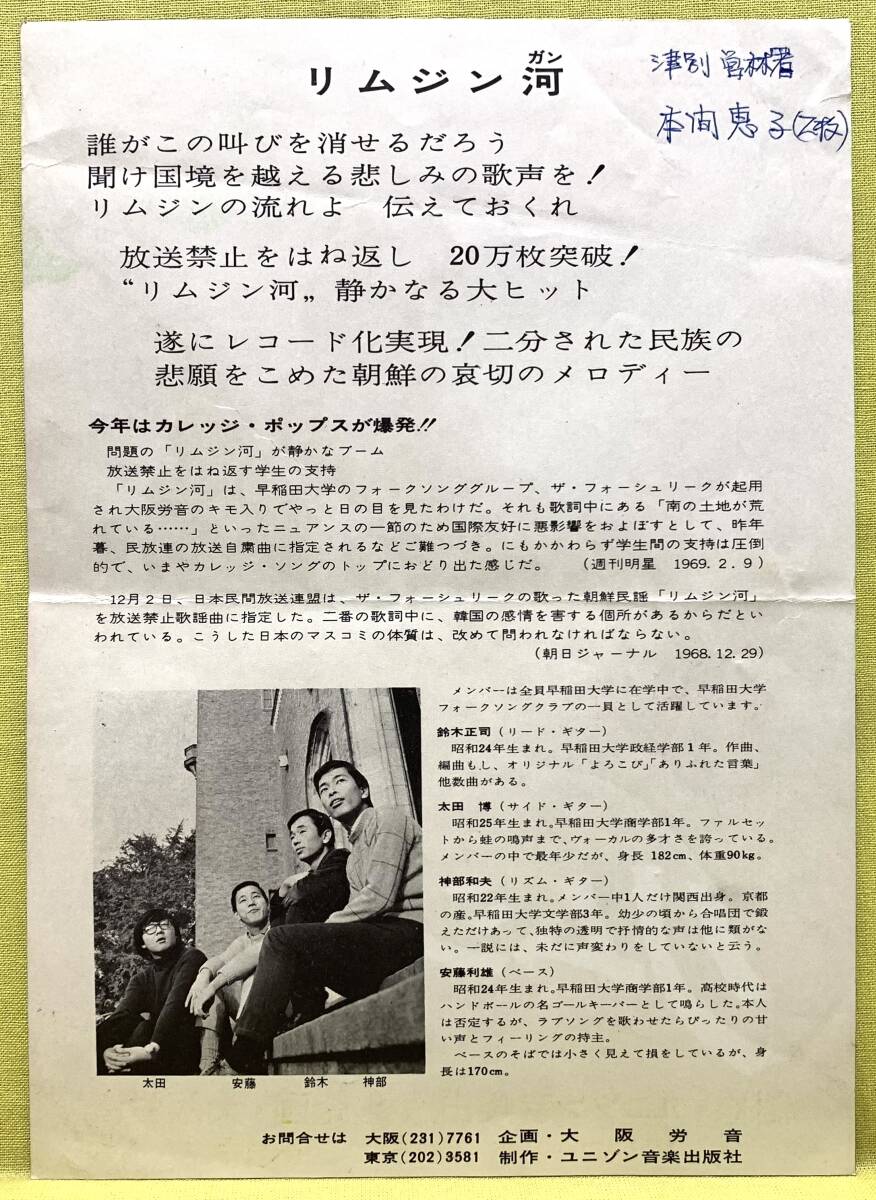 リムジン河
ガン
津別営林署
本間恵子(2枚)
誰がこの叫びを消せるだろう
聞け国境を越える悲しみの歌声を!
リムジンの流れよ 伝えておくれ
放送禁止をはね返し 20万枚突破!
“リムジン河„ 静かなる大ヒット
遂にレコード化実現!二分された民族の
悲願をこめた朝鮮の哀切のメロディー
今年はカレッジ・ポップスが爆発!!
問題の「リムジン河」が静かなブーム
放送禁止をはね返す学生の支持
「リムジン河」は、早稲田大学のフォークソンググループ、ザ・フォーシュリークが起用
され大阪労音のキモ入りでやっと日の目を見たわけだ。それも歌詞中にある「南の土地が荒
れている……」といったニュアンスの一節のため国際友好に悪影響をおよぼすとして、昨年
暮、民放連の放送自粛曲に指定されるなどご難つづき。にもかかわらず学生間の支持は圧倒
的で、いまやカレッジ・ソングのトップにおどり出た感じだ。 (週刊明星 1969.2.9)
12月2日、日本民間放送連盟は、ザ・フォーシュリークの歌った朝鮮民謡「リムジン河」
を放送禁止歌謡曲に指定した。二番の歌詞中に、韓国の感情を害する個所があるからだとい
われている。こうした日本のマスコミの体質は、改めて問われなければならない。
(朝日ジャーナル 1968.12.29)
メンバーは全員早稲田大学に在学中で、早稲田大学
フォークソングクラブの一員として活躍しています。
鈴木正司(リード・ギター)
昭和24年生まれ。早稲田大学政経学部1年。作曲、
編曲もし、オリジナル「よろこび」「ありふれた言葉」
他数曲がある。
太田 博(サイド・ギター)
昭和25年生まれ。早稲田大学商学部1年。ファルセッ
トから蛙の鳴声まで、ヴォーカルの多才さを誇っている。
メンバーの中で最年少だが、身長 182cm、体重90kg。
神部和夫(リズム・ギター)
昭和22年生まれ。メンバー中1人だけ関西出身。京都
の産。早稲田大学文学部3年。幼少の頃から合唱団で鍛
えただけあって、独特の透明で抒情的な声は他に類がな
い。一説には、未だに声変わりをしていないと云う。
安藤利雄(ベース)
昭和24年生まれ。早稲田大学商学部1年。高校時代は
ハンドボールの名ゴールキーパーとして鳴らした。本人
は否定するが、ラブソングを歌わせたらぴったりの甘
い声とフィーリングの持主。
ベースのそばでは小さく見えて損をしているが、身
長は170cm。
太田 安藤 鈴木 神部
お問合せは 大阪(231)7761 企画・大阪労音
東京(202)3581 制作・ユニゾン音楽出版社